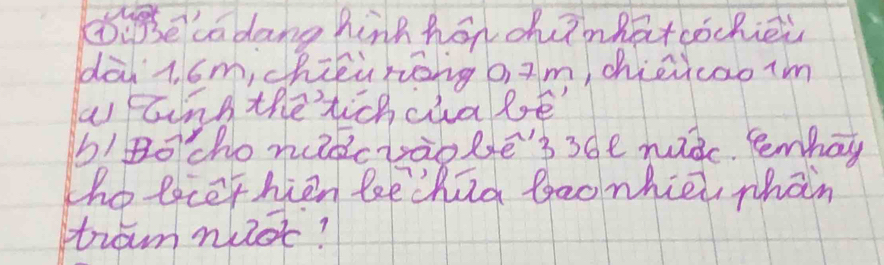 ①: Bể cá dạng hình hộp chữ nhật có chiều
dài 1,6m, chiều rộng 0,7m, chiều cao 1m
a) Tính thể tích của bể
b) Bố cho nước vào bể 336l nước. Em hãy
cho biết hiện bể chứa bao nhiêu phần
trăm nước?